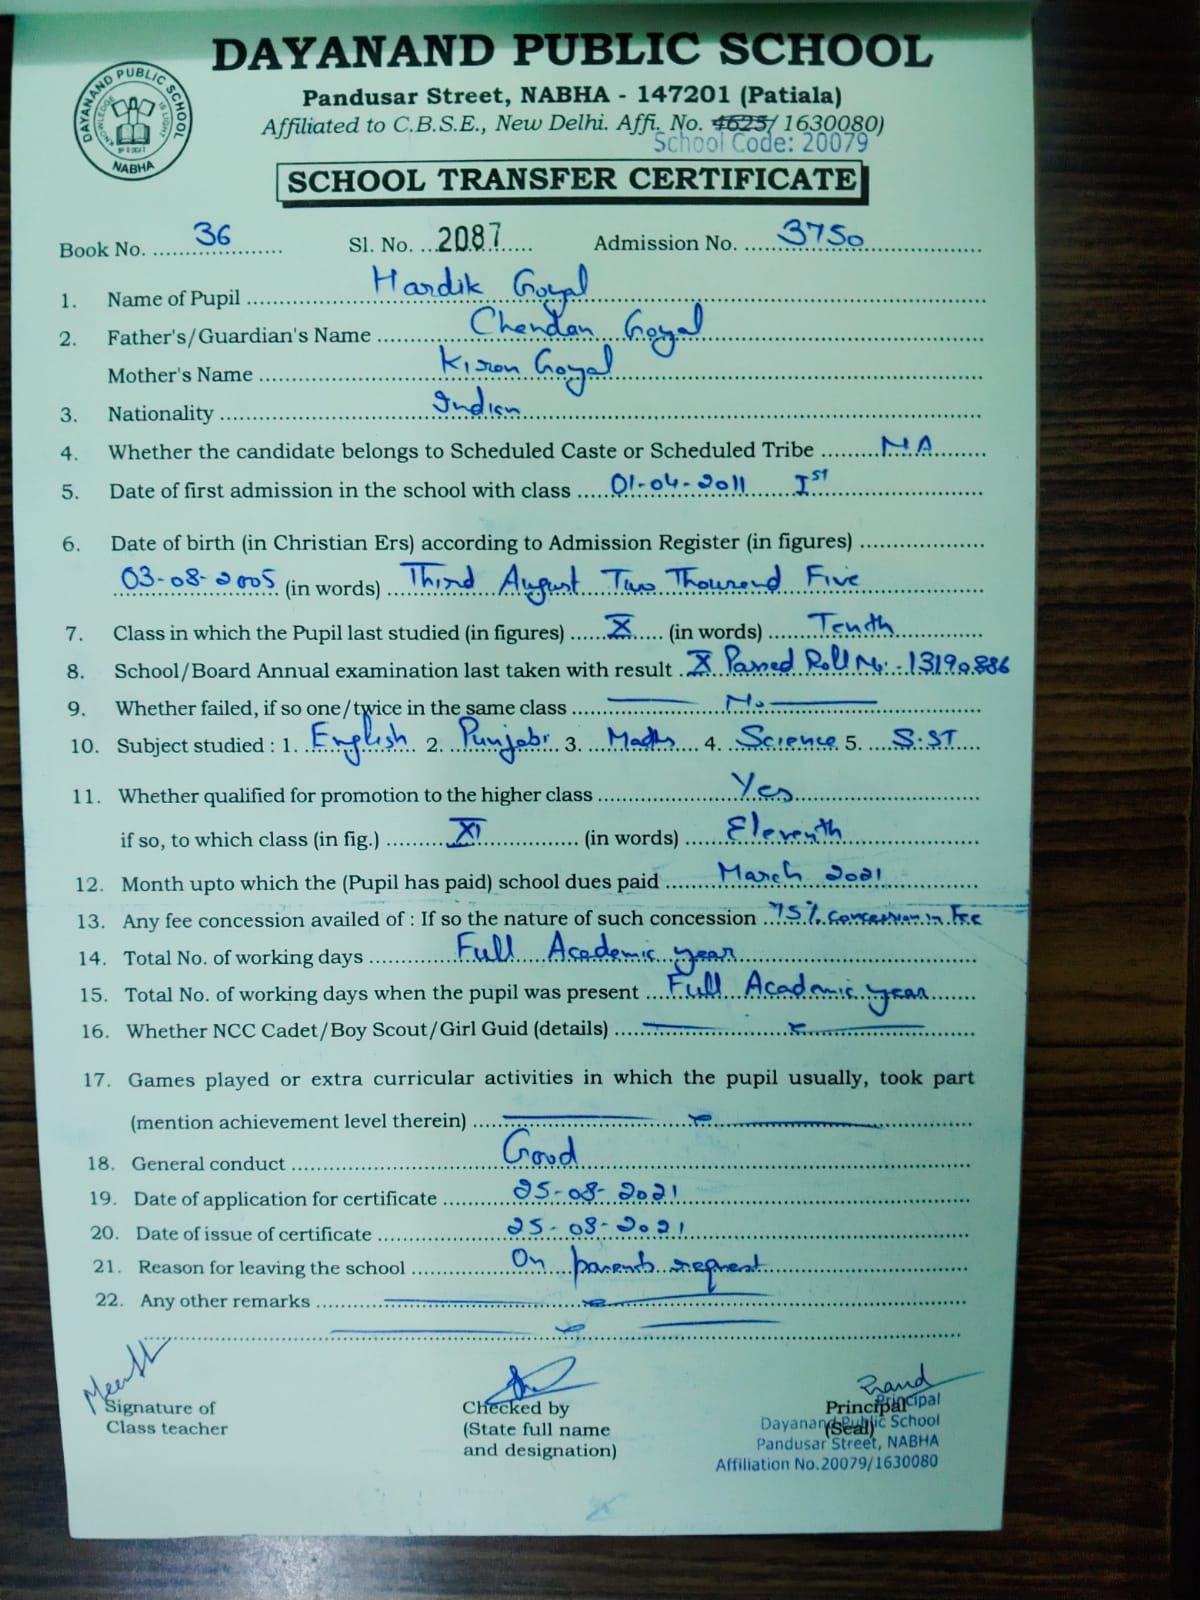 DAYANAND PUBLIC SCHOOL
Pandusar Street, NABHA - 147201 (Patiala)
Affiliated to C.B.S.E., New Delhi. Affi. No. 4625/ 1630080)
School Code: 20079
DAYANAND PUBLIC SCHOOL
KNOWLEDGE IS LIGHT
NABHA
SCHOOL TRANSFER CERTIFICATE
Book No. 36 Sl. No. 2087 Admission No. 3750
1. Name of Pupil Hardik Goyal
2. Father's/Guardian's Name Chandan Goyal
Mother's Name Kiran Goyal
3. Nationality Indian
4. Whether the candidate belongs to Scheduled Caste or Scheduled Tribe NA
5. Date of first admission in the school with class 01-04-2011 Ist
6. Date of birth (in Christian Ers) according to Admission Register (in figures)
03-08-2005 (in words) Third August Two Thousand Five
7. Class in which the Pupil last studied (in figures) X (in words) Tenth
8. School/Board Annual examination last taken with result X Passed Roll No. - 13190886
9. Whether failed, if so one/twice in the same class No
10. Subject studied : 1. English 2. Punjabi 3. Maths 4. Science 5. S.ST
11. Whether qualified for promotion to the higher class Yes
if so, to which class (in fig.) XI (in words) Eleventh
12. Month upto which the (Pupil has paid) school dues paid March 2021
13. Any fee concession availed of : If so the nature of such concession 75% Concession in Fee
14. Total No. of working days Full Academic year
15. Total No. of working days when the pupil was present Full Academic year
16. Whether NCC Cadet/Boy Scout/Girl Guid (details)
17. Games played or extra curricular activities in which the pupil usually, took part
(mention achievement level therein)
18. General conduct Good
19. Date of application for certificate 25-08-2021
20. Date of issue of certificate 25-08-2021
21. Reason for leaving the school On parents request
22. Any other remarks
Signature of
Class teacher
Checked by
(State full name
and designation)
Principal
(Seal)
Principal
Dayanand Public School
Pandusar Street, NABHA
Affiliation No.20079/1630080